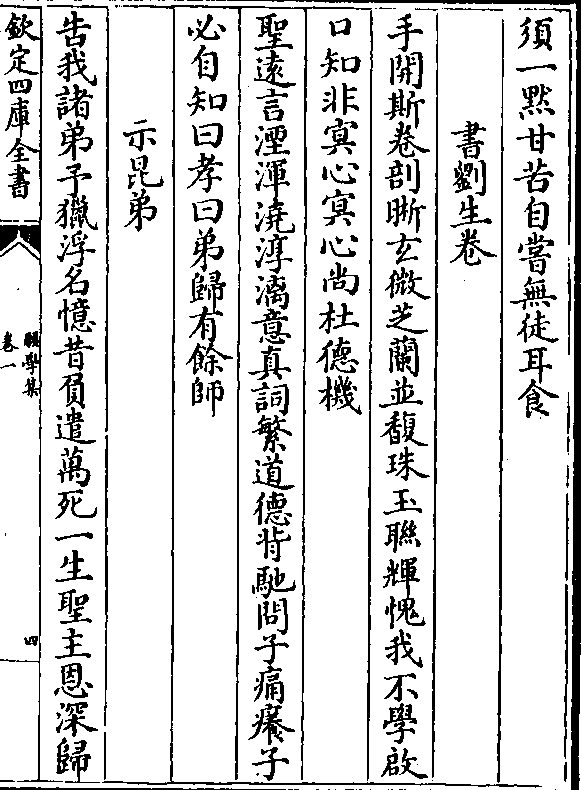 須一㸃甘苦自嘗無徒耳食
書劉生卷
手開斯卷剖晣玄微芝蘭並馥珠玉聯輝愧我不學啟
口知非寞心寞心尚杜德機
聖遠言湮渾澆淳漓意真詞繁道德背馳問子痛癢子
必自知曰孝曰弟歸有餘師
示昆弟
告我諸弟予獵浮名憶昔肙遣萬死一生聖主恩深歸
欽定四庫全書
卷一
學集
四